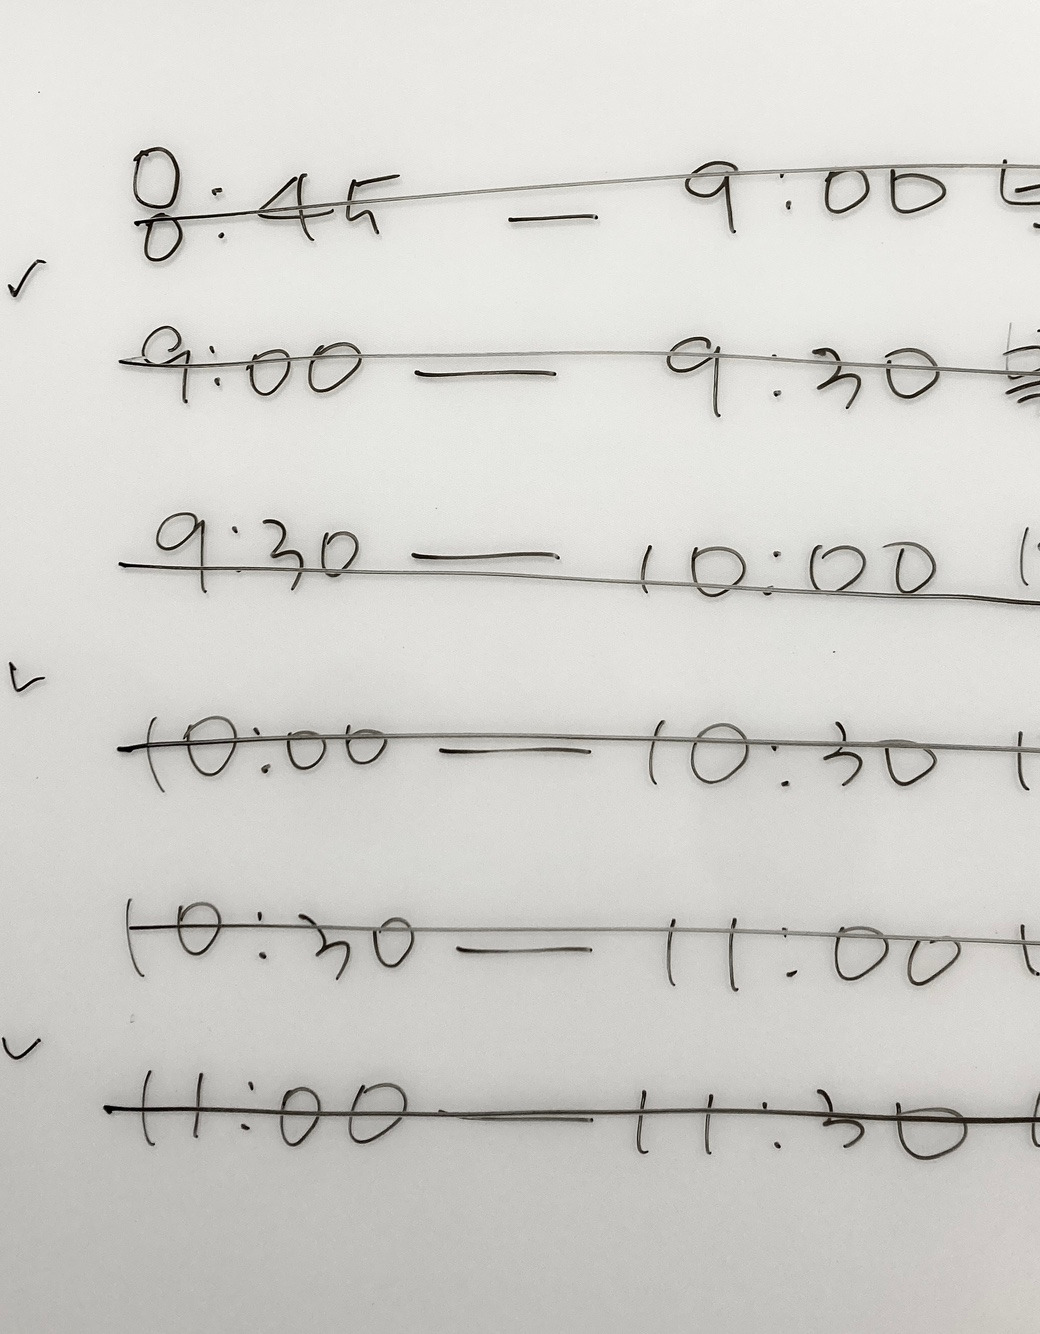 8:45 — 9:00
9:00 — 9:30
9:30 — 10:00
10:00 — 10:30
10:30 — 11:00
11:00 — 11:30